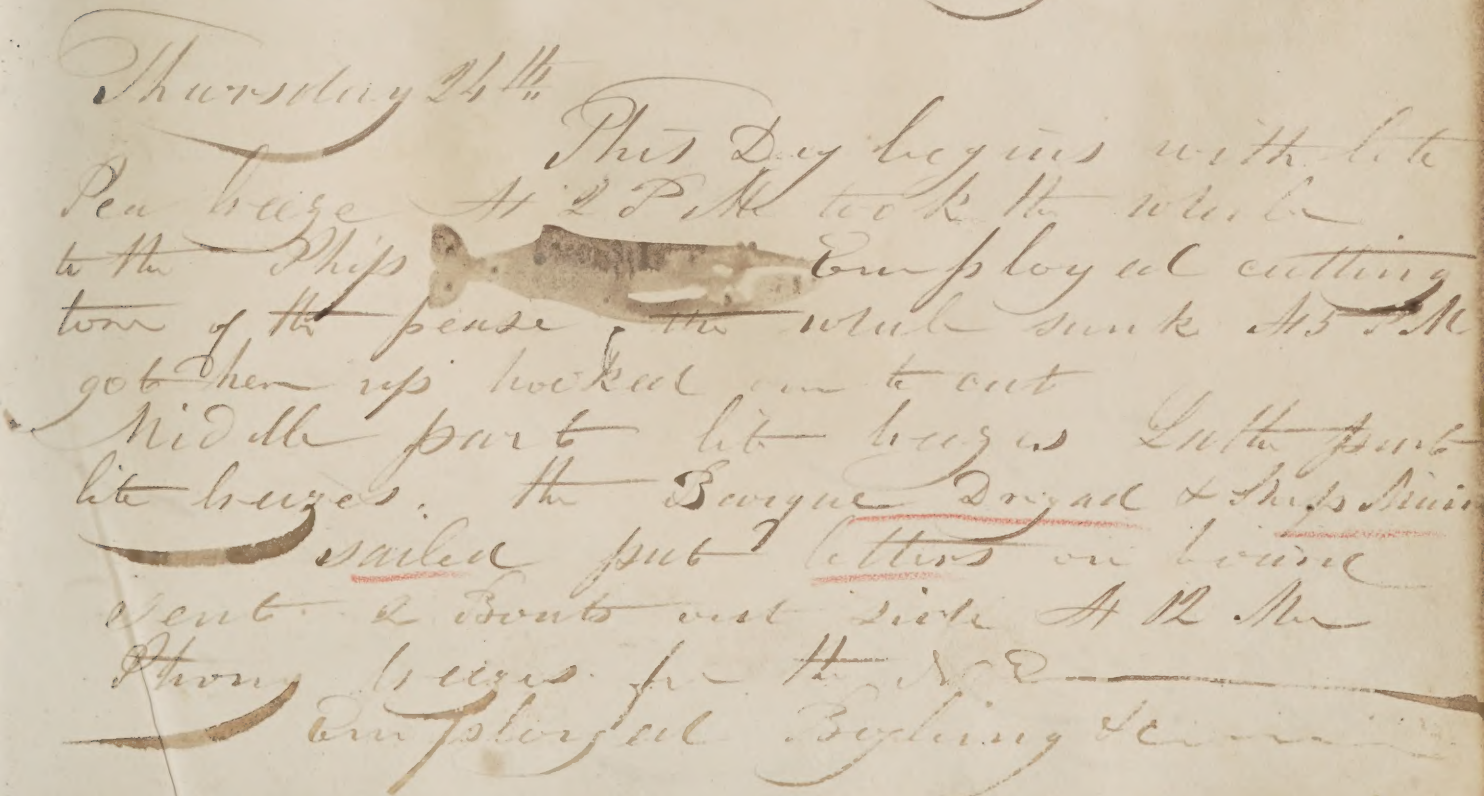 Thursday 24th
This Day begins with lite
Sea breeze At 2 P M took the whale
to the Ship Employed cutting
torn of the pease, the whale sunk At 5 P M
got her up hooked on to cut
Middle part lite breezes Latter part
lite breezes. the Barque Dryad & Ship
sailed put letters on bound
Sent 2 Boats out side At 12 Me
Strong breezes fr the N E
Employed Boyling &c